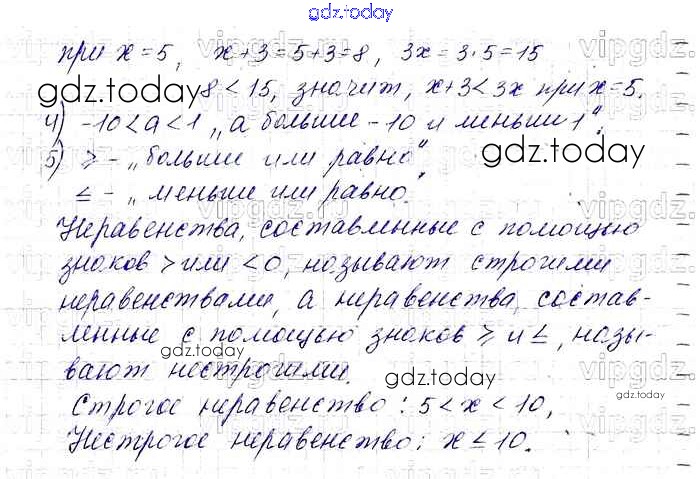 gdz.today
при x=5, x+3=5+3=8, 3x=3·5=15
8<15, значит, x+3<3x при x=5.
gdz.today
4) -10<a<1 „a больше -10 и меньше 1".
5) ≥ - „больше или равно"
gdz.today
≤ - „меньше или равно.
Неравенства, составленные с помощью
знаков > или <0, называют строгими
неравенствами, а неравенства, состав-
ленные с помощью знаков ≥ и ≤, назы-
gdz.today
вают нестрогими.
gdz.today
Строгое неравенство: 5<x<10,
gdz.today
Нестрогое неравенство: x≤10.